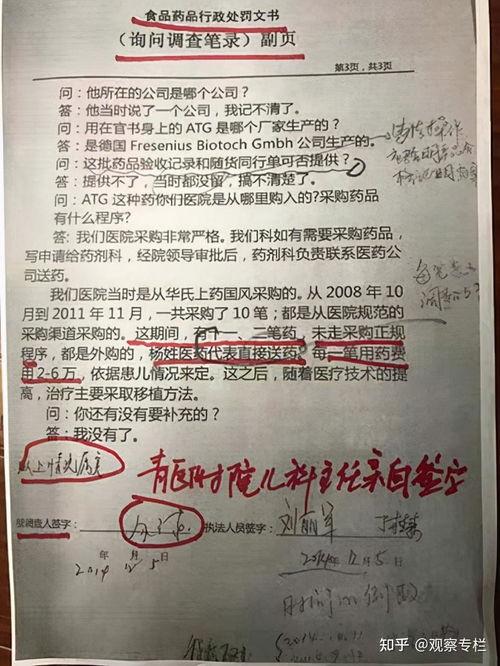 食品药品行政处罚文书
（询问调查笔录）副页
第3页，共3页
问：他所在的公司是哪个公司？
答：他当时说了一个公司，我记不清了。
问：用在官书身上的 ATG 是哪个厂家生产的？
答：是德国 Fresenius Biotoch Gmbh 公司生产的。
问：这批药品验收记录和随货同行单可否提供？
答：提供不了，当时都没留，搞不清楚了。
问：ATG 这种药你们医院是从哪里购入的?采购药品
有什么程序？
答: 我们医院采购非常严格。我们科如有需要采购药品，
写申请给药剂科，经院领导审批后，药剂科负责联系医药公
司送药。
我们医院当时是从华氏上药国风采购的。从 2008 年 10
月到 2011 年 11 月，一共采购了 10 笔；都是从医院规范的
采购渠道采购的。这期间，有十一、二笔药，未走采购正规
程序，都是外购的，杨姓医药代表直接送药。每一笔用药费
用 2-6 万，依据患儿情况来定。这之后，随着医疗技术的提
高，治疗主要采取移植方法。
问：你还有没有要补充的？
答：我没有了。
以上情况属实
青医附院儿科主任亲自签字
被调查人签字：
执法人员签字：刘丽军
年 月 日
2014 12 5
2014年12月5日
知乎 @观察专栏